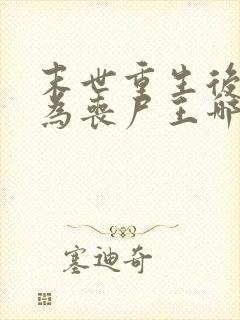 末世重生後
為喪尸王哪
塞迪奇